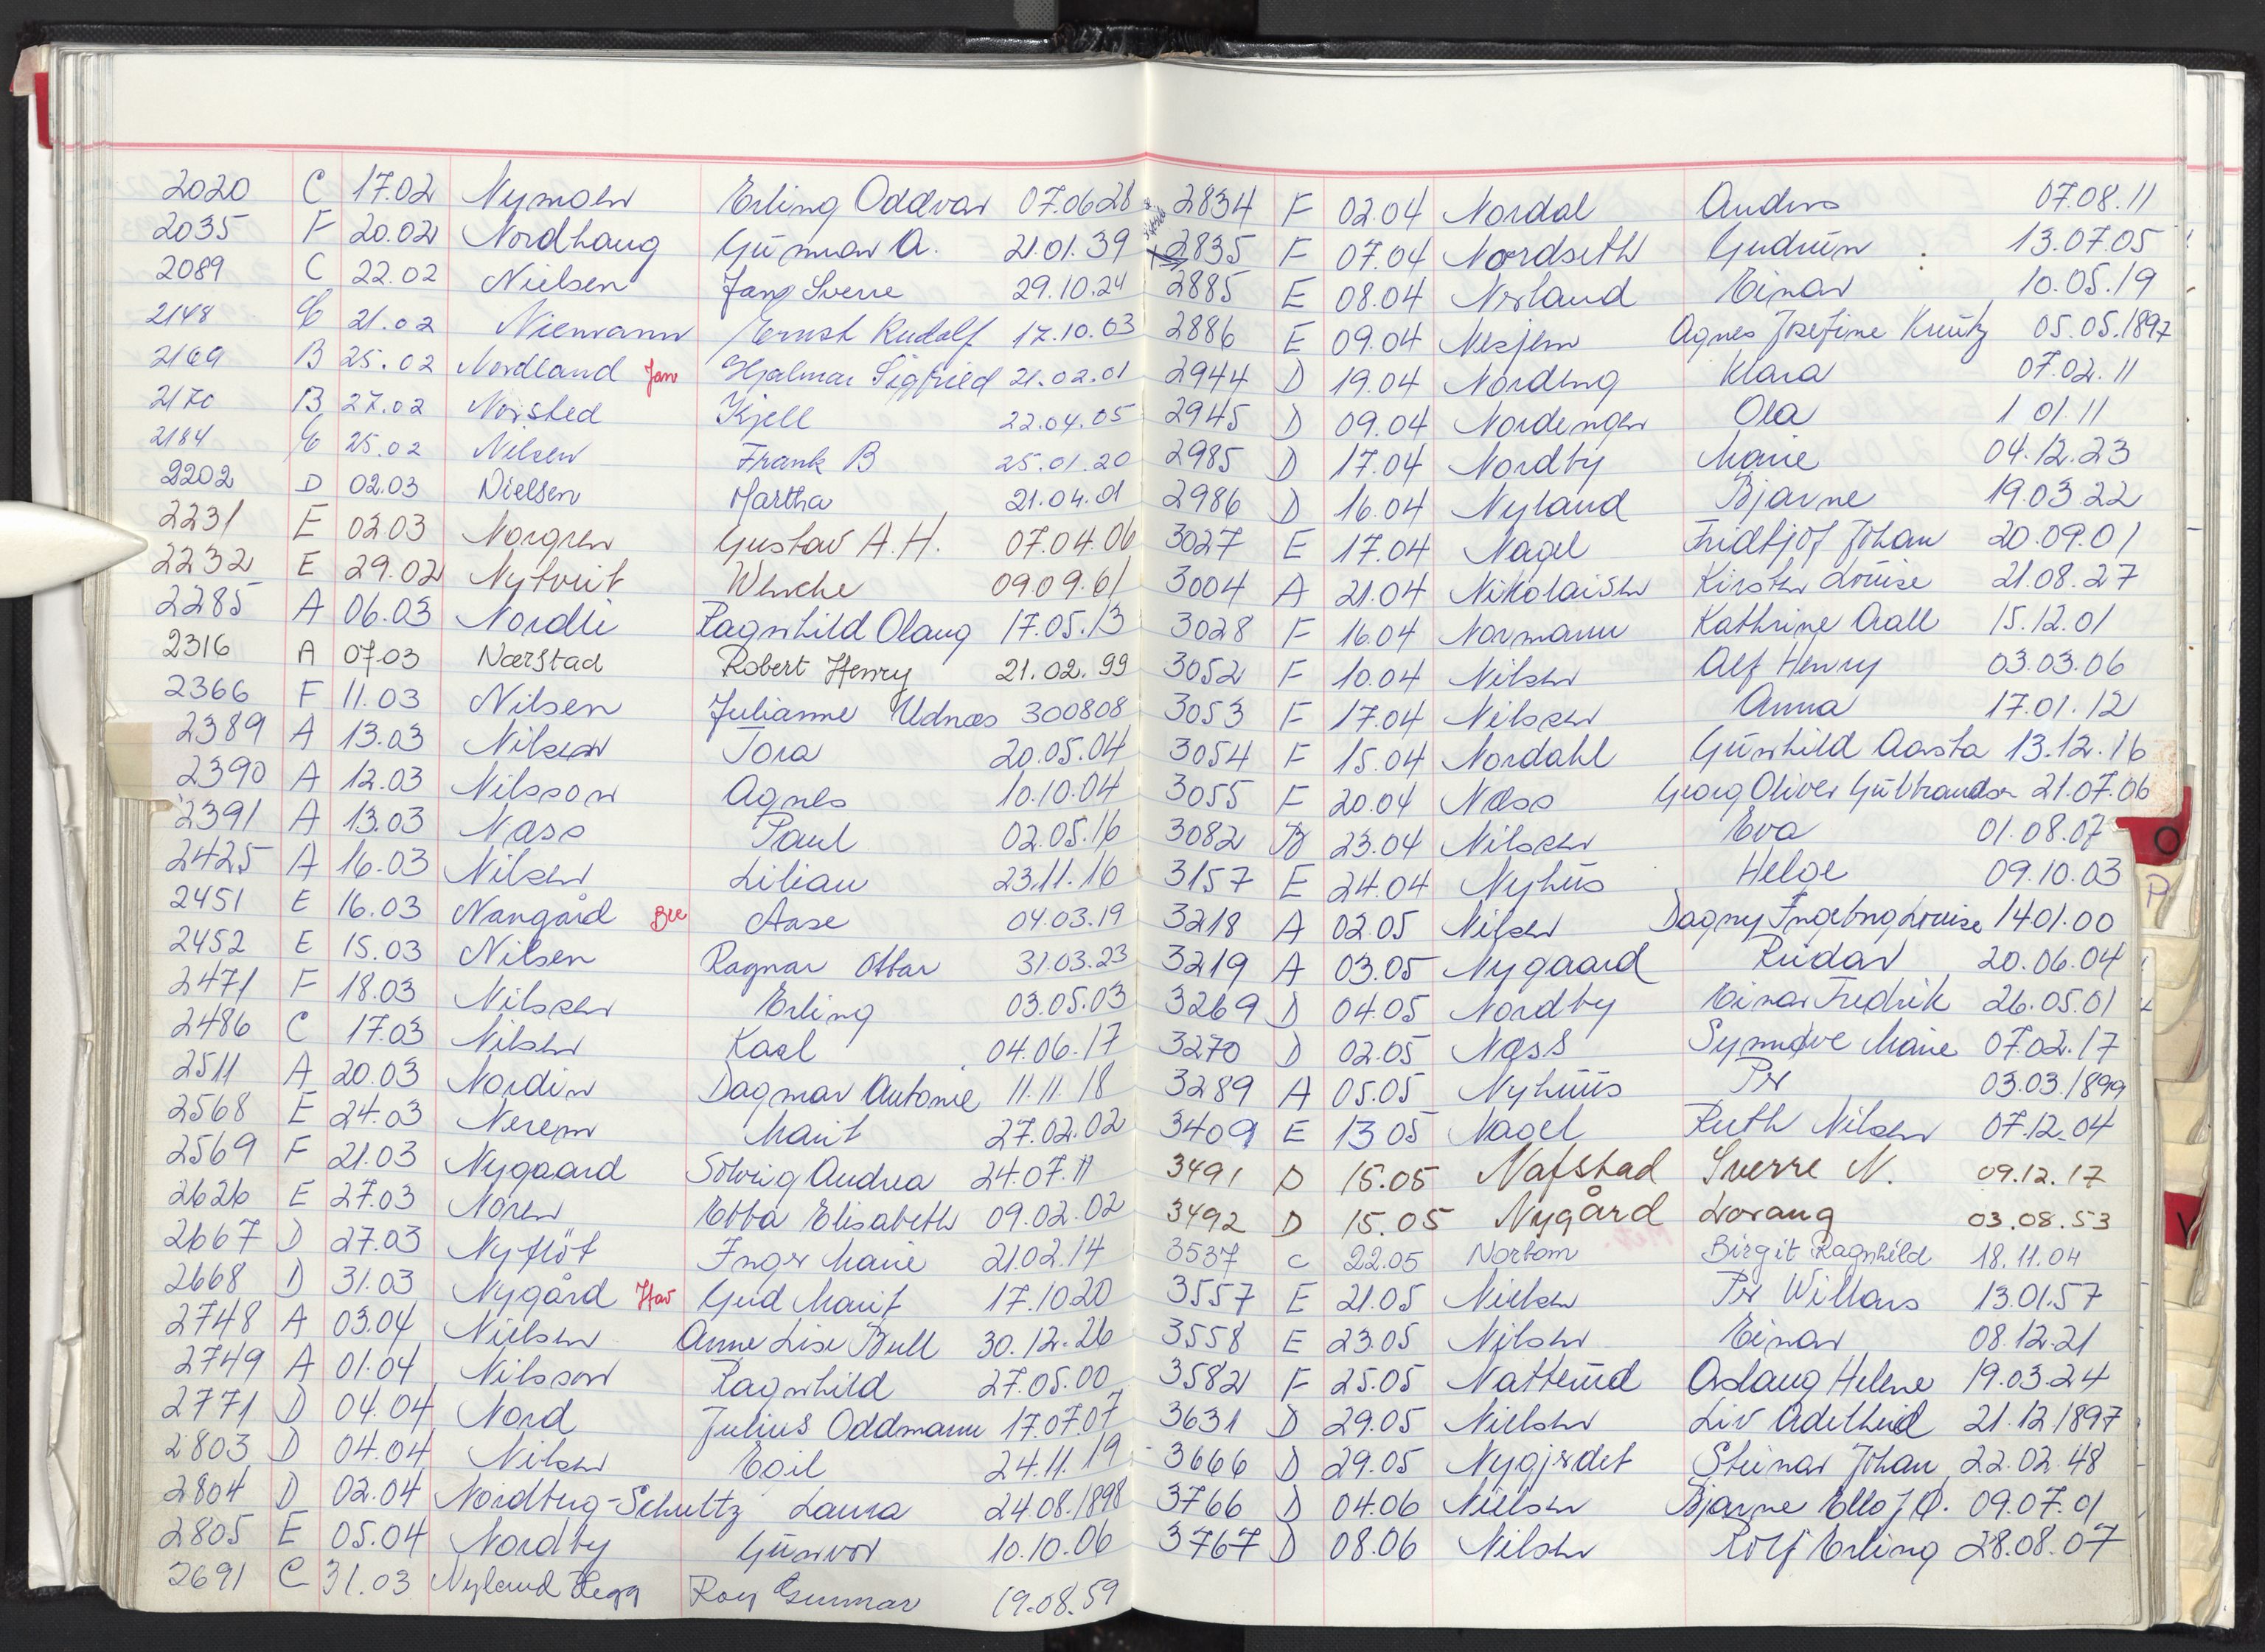 2020 C 17.02 Nymoen Erling Oddvar 07.06.28
2035 F 20.02 Nordhaug Gunnar A. 21.01.39
2089 C 22.02 Nielsen Jan Sverre 29.10.24
2148 C 21.02 Niemann Ernst Rudolf 17.10.03
2169 B 25.02 Nordland Jan Hjalmar Sigfried 21.02.01
2170 B 27.02 Norsted Kjell 22.04.05
2184 C 25.02 Nilsen Frank B 25.01.20
2202 D 02.03 Nielsen Martha 21.04.01
2231 E 02.03 Norgren Gustav A.H. 07.04.06
2232 E 29.02 Nytveit Wenche 09.09.61
2285 A 06.03 Nordli Ragnhild Olaug 17.05.13
2316 A 07.03 Nærstad Robert Henry 21.02.99
2366 F 11.03 Nilsen Julianne Udnæs 300808
2389 A 13.03 Nilsen Tora 20.05.04
2390 A 12.03 Nilsson Agnes 10.10.04
2391 A 13.03 Næss Paul 02.05.16
2425 A 16.03 Nilsen Lilian 23.11.16
2451 E 16.03 Nangård Aase 04.03.19
2452 E 15.03 Nilsen Ragnar Ottar 31.03.23
2471 F 18.03 Nilssen Erling 03.05.03
2486 C 17.03 Nilsen Karl 04.06.17
2511 A 20.03 Nordin Dagmar Antonie 11.11.18
2568 E 24.03 Nerem Marit 27.02.02
2569 F 21.03 Nygaard Solveig Andrea 24.07.11
2626 E 27.03 Noren Ebba Elisabeth 09.02.02
2667 D 27.03 Nyfløt Inger Marie 21.02.14
2668 D 31.03 Nygård Gud Marit 17.10.20
2748 A 03.04 Nielsen Anne Lise Bull 30.12.26
2749 A 01.04 Nilsson Ragnhild 27.05.00
2771 D 04.04 Nord Julius Oddmann 17.07.07
2803 D 04.04 Nilsen Egil 24.11.19
2804 D 02.04 Nordberg-Schultz Laura 24.08.1898
2805 E 05.04 Nordby Gunvor 10.10.06
2691 C 31.03 Nyland Hegg Roy Gunnar 19.08.59
2834 F 02.04 Nordal Anders 07.08.11
2835 F 07.04 Nordseth Gudrun 13.07.05
2885 E 08.04 Nerland Einar 10.05.19
2886 E 09.04 Nesjem Agnes Josefine Kreutz 05.05.1897
2944 D 19.04 Nordeng Klara 07.02.11
2945 D 09.04 Nordengen Ola 1 01.11
2985 D 17.04 Nordby Marie 04.12.23
2986 D 16.04 Nyland Bjarne 19.03.22
3027 E 17.04 Nagel Fridtjof Johan 20.09.01
3004 A 21.04 Nikolaisen Kirsten Louise 21.08.27
3028 F 16.04 Normann Kathrine Aall 15.12.01
3052 F 10.04 Nilsen Alf Henry 03.03.06
3053 F 17.04 Nilssen Anna 17.01.12
3054 F 15.04 Nordahl Gunhild Aasta 13.12.16
3055 F 20.04 Næss Georg Oliver Gulbrandsen 21.07.06
3082 B 23.04 Nilssen Eva 01.08.07
3157 E 24.04 Nyhus Helge 09.10.03
3218 A 02.05 Nilsen Dagny Ingeborg Louise 14.01.00
3219 A 03.05 Nygaard Reidar 20.06.04
3269 D 04.05 Nordby Einar Fredrik 26.05.01
3270 D 02.05 Næss Synnøve Marie 07.02.17
3289 A 05.05 Nyhuus Per 03.03.1899
3409 E 13 05 Nagel Ruth Nilsen 07.12.04
3491 D 15.05 Nafstad Sverre N. 09.12.17
3492 D 15.05 Nygård Lorang 03.08.53
3537 C 22.05 Norbom Birgit Ragnhild 18.11.04
3557 E 21.05 Nielsen Per Willars 13.01.57
3558 E 23.05 Nilsen Einar 08.12.21
3582 F 25.05 Natterud Aslaug Helene 19.03.24
3631 D 29.05 Nielsen Liv Adelheid 21.12.1897
3666 D 29.05 Nygjerdet Steinar Johan 22.02.48
3766 D 04.06 Nielsen Bjarne Ello J Ø. 09.07.01
3767 D 08.06 Nilsen Rolf Erling 28.08.07
O
P
V